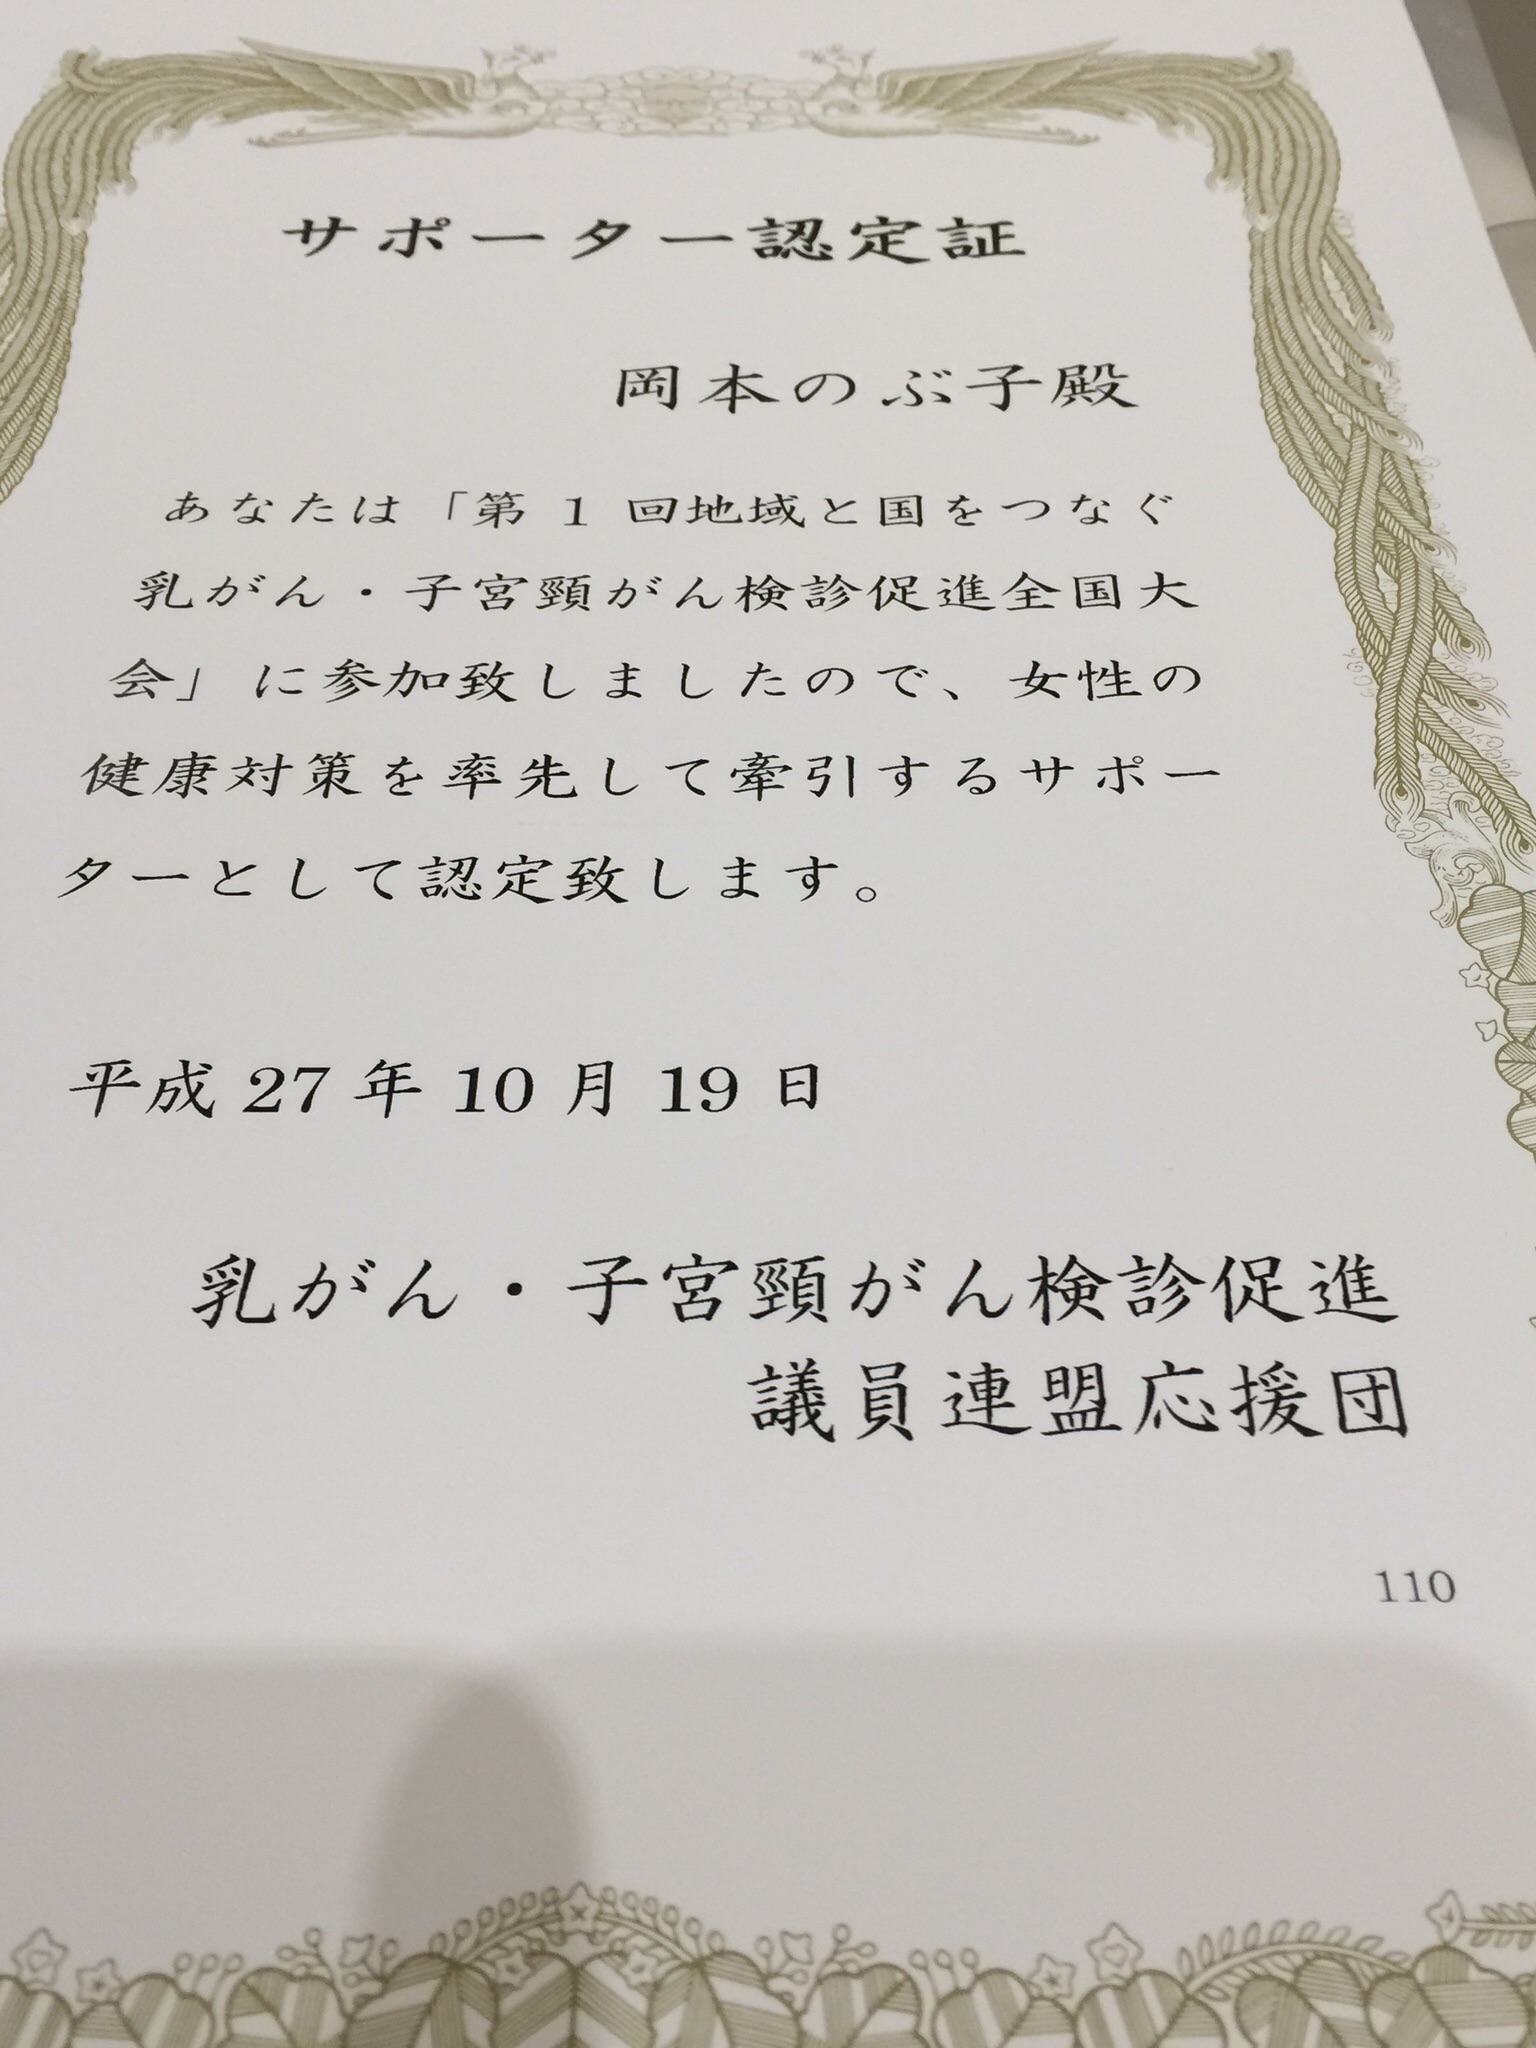 サポーター認定証
岡本のぶ子殿
あなたは「第 1 回地域と国をつなぐ
乳がん・子宮頸がん検診促進全国大
会」に参加致しましたので、女性の
健康対策を率先して牽引するサポー
ターとして認定致します。
平成 27 年 10 月 19 日
乳がん・子宮頸がん検診促進
議員連盟応援団
110